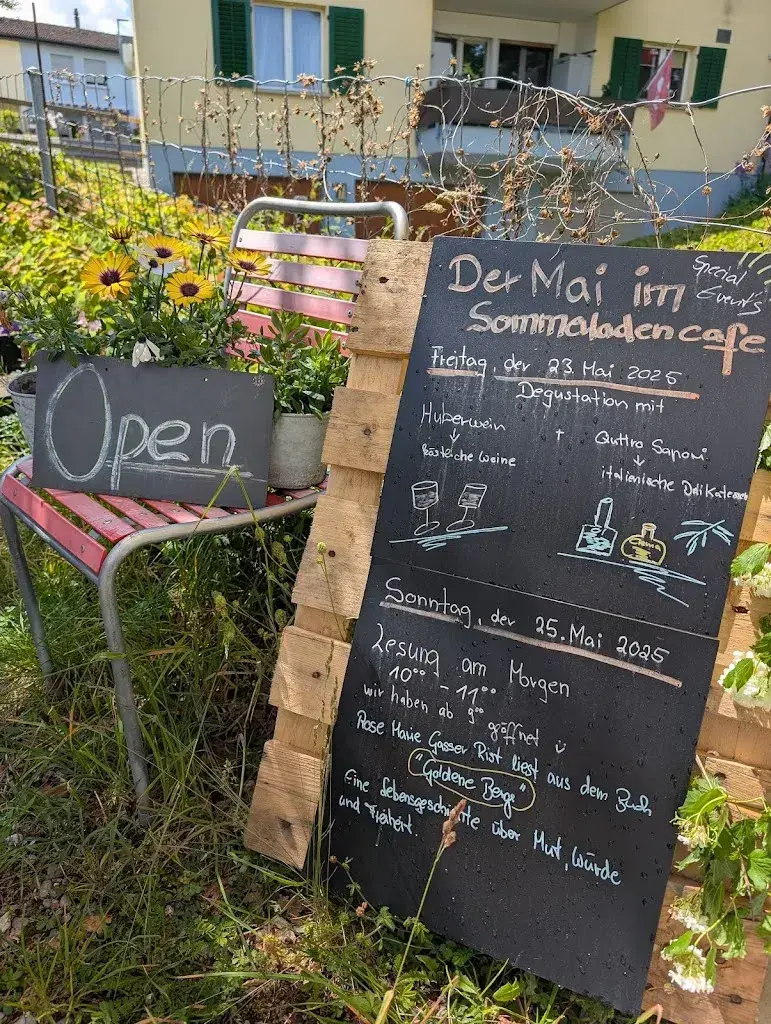 Open
Der Mai im
Special
Events
Sommaladencafe
Freitag, der 23. Mai 2025
Degustation mit
Huberwein + Quttro Sapori
Köstliche Weine
italienische Delikatessen
Sonntag, der 25. Mai 2025
Lesung am Morgen
10°° - 11°°
wir haben ab 9°° geöffnet
Rose Marie Gasser Rist liest aus dem Buch
"Goldene Berge"
Eine Lebensgeschichte über Mut, Würde
und Freiheit.